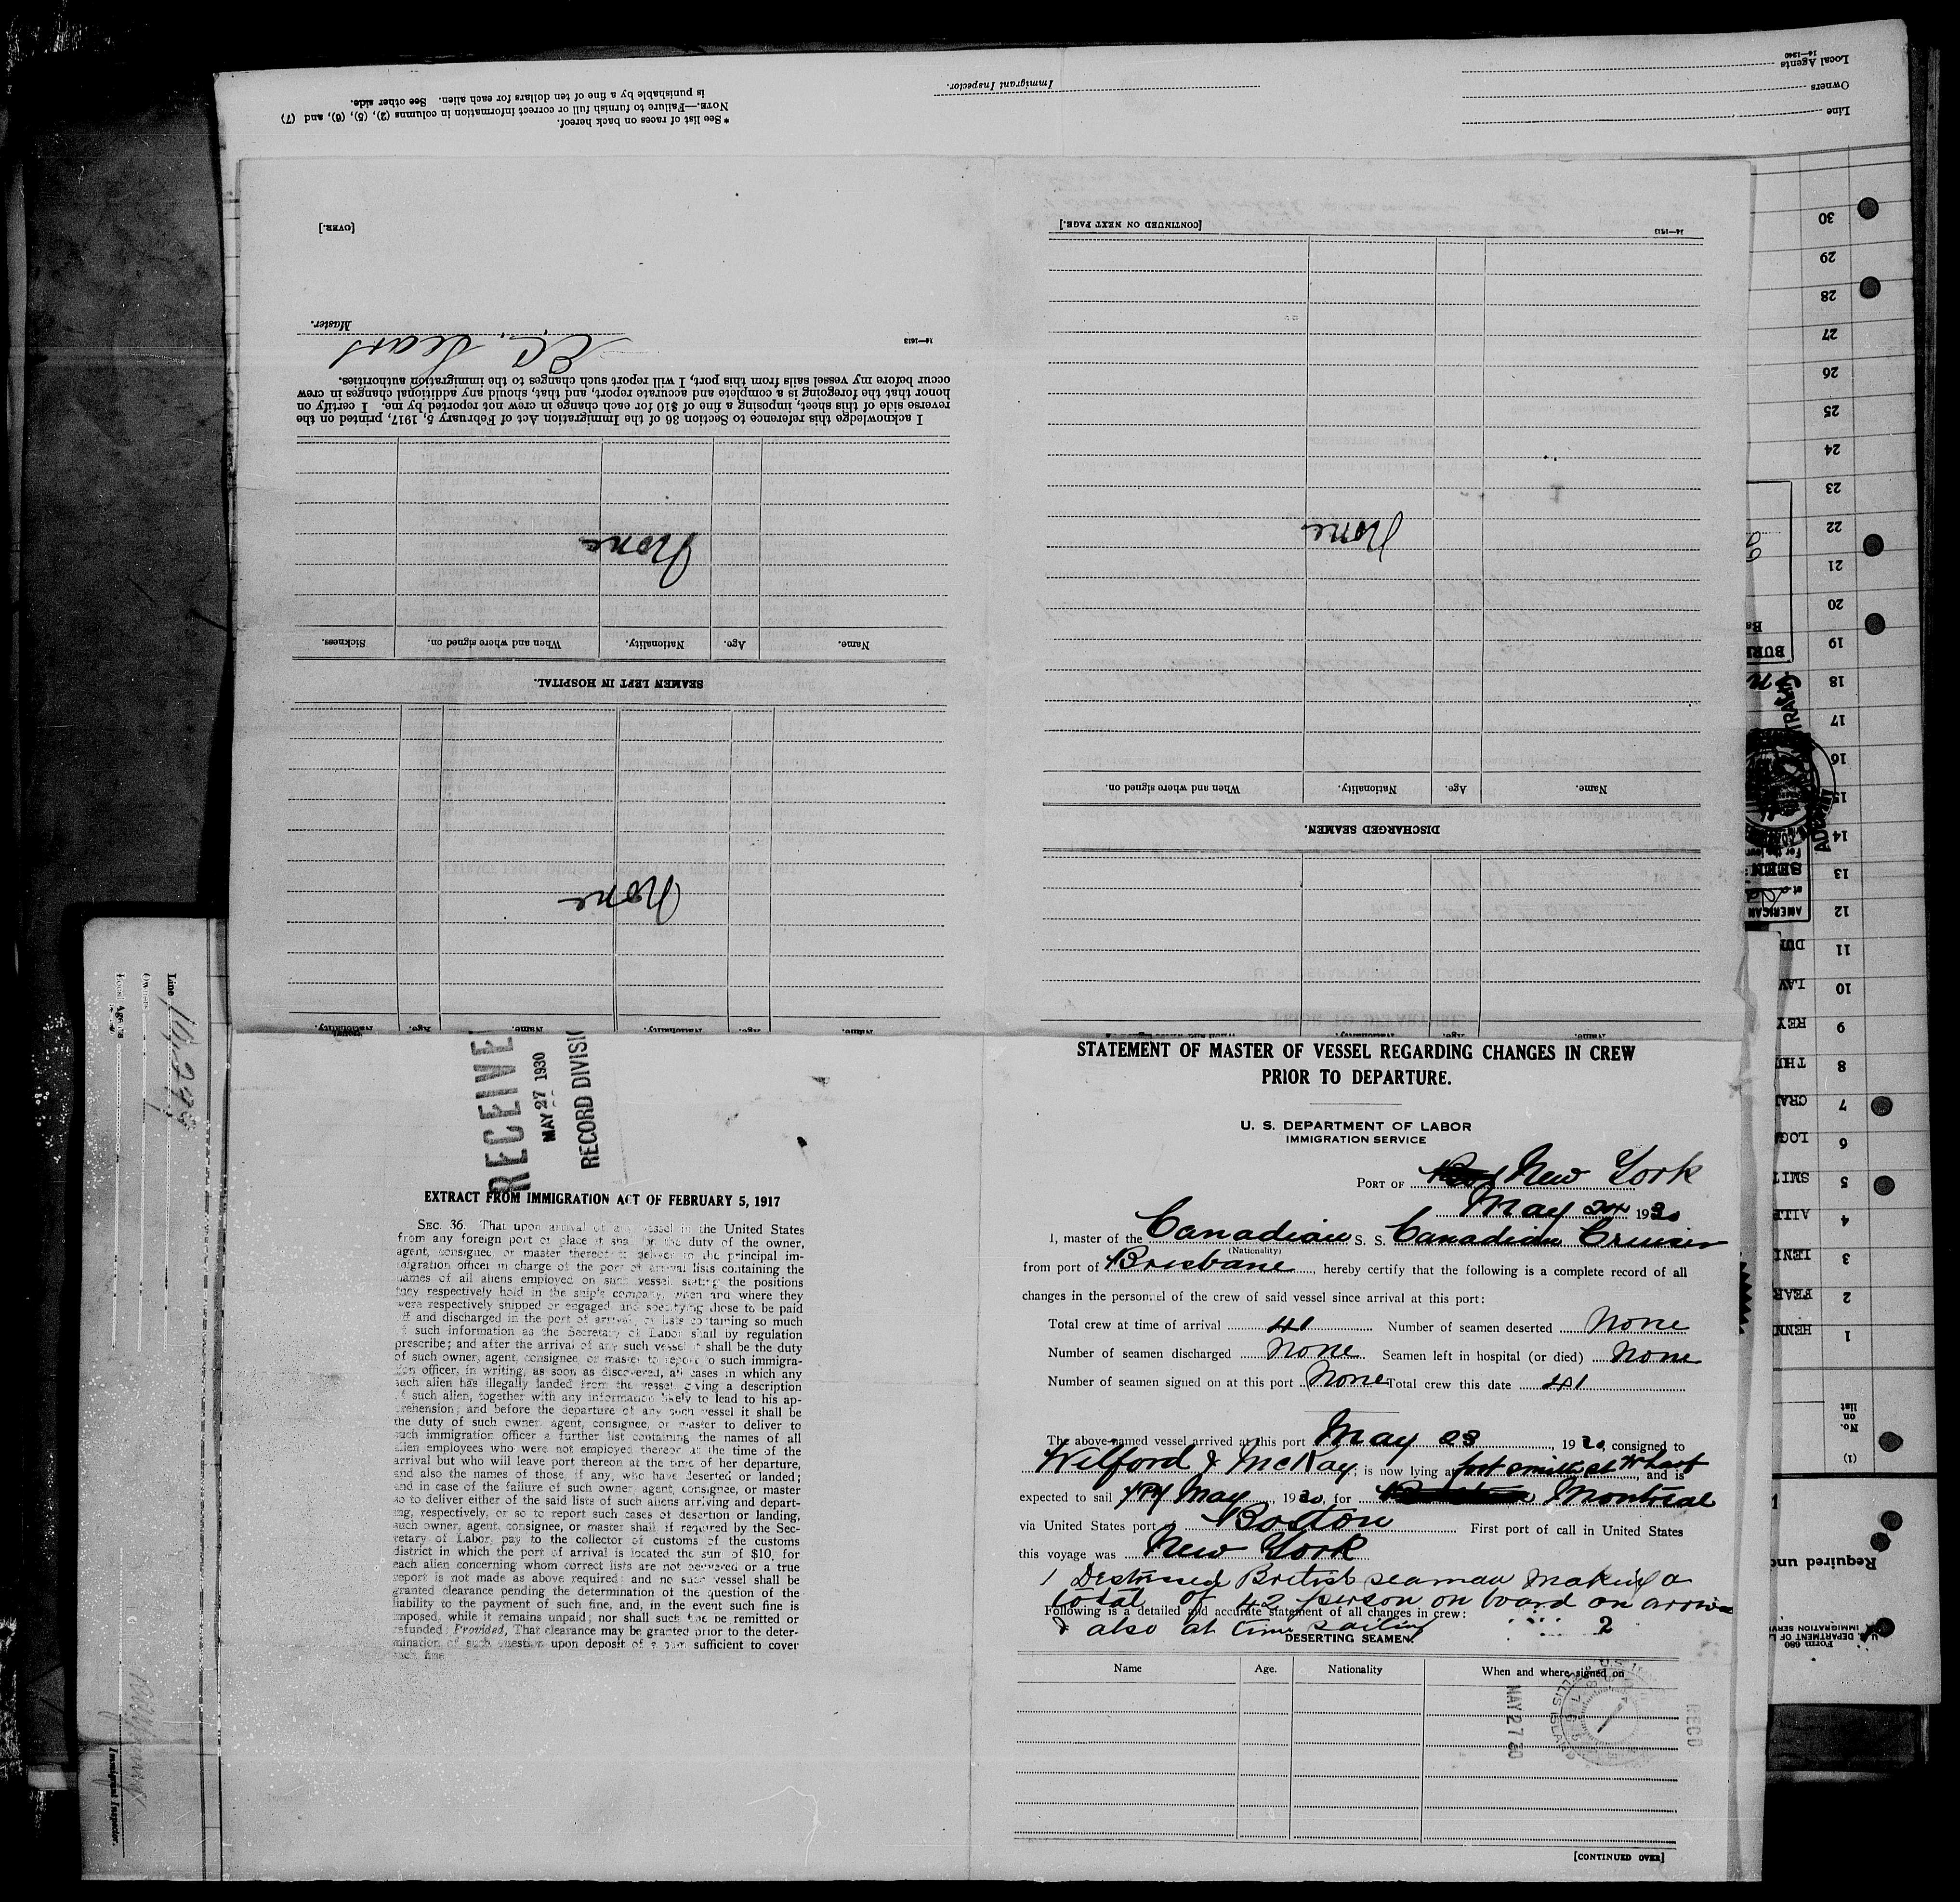 14—1240
Local Agents
Owners
Line
Immigrant Inspector.
* See list of races on back hereof.
NOTE.—Failure to furnish full or correct information in columns (2), (5), (6), and (7)
is punishable by a fine of ten dollars for each alien. See other side.
Name. Age. Nationality. Name. Age.
None
SEAMEN LEFT IN HOSPITAL.
Name. Age. Nationality. When and where signed on. Sickness.
None
I acknowledge this reference to Section 36 of the Immigration Act of February 5, 1917, printed on the
reverse side of this sheet, imposing a fine of $10 for each change in crew not reported by me. I certify on
honor that the foregoing is a complete and accurate report, and that, should any additional changes in crew
occur before my vessel sails from this port, I will report such changes to the immigration authorities.
14—1613
Master.
[OVER.]
Name. Age. Nationality.
DISCHARGED SEAMEN.
Name. Age. Nationality. When and where signed on.
None
14—1613
[CONTINUED ON NEXT PAGE.]
30
29
28
27
26
25
24
23
22
21
20
19
18
17
16
15
14
13
12
11
10
9
8
7
6
5
4
3
2
1
No.
on
list
(1)
SEEN
AMERICAN
Required
Form 680
Line
Immigrant Inspector.
RECEIVE
MAY 27 1930
RECORD DIVISIO
EXTRACT FROM IMMIGRATION ACT OF FEBRUARY 5, 1917
SEC. 36. That upon arrival of any vessel in the United States
from any foreign port or place it shall be the duty of the owner,
agent, consignee, or master thereof to deliver to the principal im-
migration officer in charge of the port of arrival lists containing the
names of all aliens employed on such vessel, stating the positions
they respectively hold in the ship's company, when and where they
were respectively shipped or engaged and specifying those to be paid
off and discharged in the port of arrival, or lists containing so much
of such information as the Secretary of Labor shall by regulation
prescribe; and after the arrival of any such vessel it shall be the duty
of such owner, agent, consignee, or master to report to such immigra-
tion officer, in writing, as soon as discovered, all cases in which any
such alien has illegally landed from the vessel giving a description
of such alien, together with any information likely to lead to his ap-
prehension; and before the departure of any such vessel it shall be
the duty of such owner, agent, consignee, or master to deliver to
such immigration officer a further list containing the names of all
alien employees who were not employed thereon at the time of the
arrival but who will leave port thereon at the time of her departure,
and also the names of those, if any, who have deserted or landed;
and in case of the failure of such owner, agent, consignee, or master
so to deliver either of the said lists of such aliens arriving and depart-
ing, respectively, or so to report such cases of desertion or landing,
such owner, agent, consignee, or master shall, if required by the Sec-
retary of Labor, pay to the collector of customs of the customs
district in which the port of arrival is located the sum of $10, for
each alien concerning whom correct lists are not delivered or a true
report is not made as above required; and no such vessel shall be
granted clearance pending the determination of the question of the
liability to the payment of such fine, and, in the event such fine is
imposed, while it remains unpaid; nor shall such fine be remitted or
refunded: Provided, That clearance may be granted prior to the deter-
mination of such question upon deposit of a sum sufficient to cover
such fine
STATEMENT OF MASTER OF VESSEL REGARDING CHANGES IN CREW
PRIOR TO DEPARTURE.
U. S. DEPARTMENT OF LABOR
IMMIGRATION SERVICE
PORT OF New York
May 24 1930
I, master of the Canadian S. S. Canadian Cruiser
(Nationality)
from port of Brisbane, hereby certify that the following is a complete record of all
changes in the personnel of the crew of said vessel since arrival at this port:
Total crew at time of arrival 41 Number of seamen deserted None
Number of seamen discharged None Seamen left in hospital (or died) None
Number of seamen signed on at this port None Total crew this date 41
The above-named vessel arrived at this port May 23, 1930, consigned to
Wilford & McKay; is now lying at foot smith st Wharf, and is
expected to sail May, 1930, for Montreal
via United States port of Boston First port of call in United States
this voyage was New York
1 Distressed British seaman making a
total of 42 person on board on arrival
Following is a detailed and accurate statement of all changes in crew:
& also at time sailing 2
DESERTING SEAMEN.
Name Age. Nationality When and where signed on
MAY 27 30
REC'D
[CONTINUED OVER]